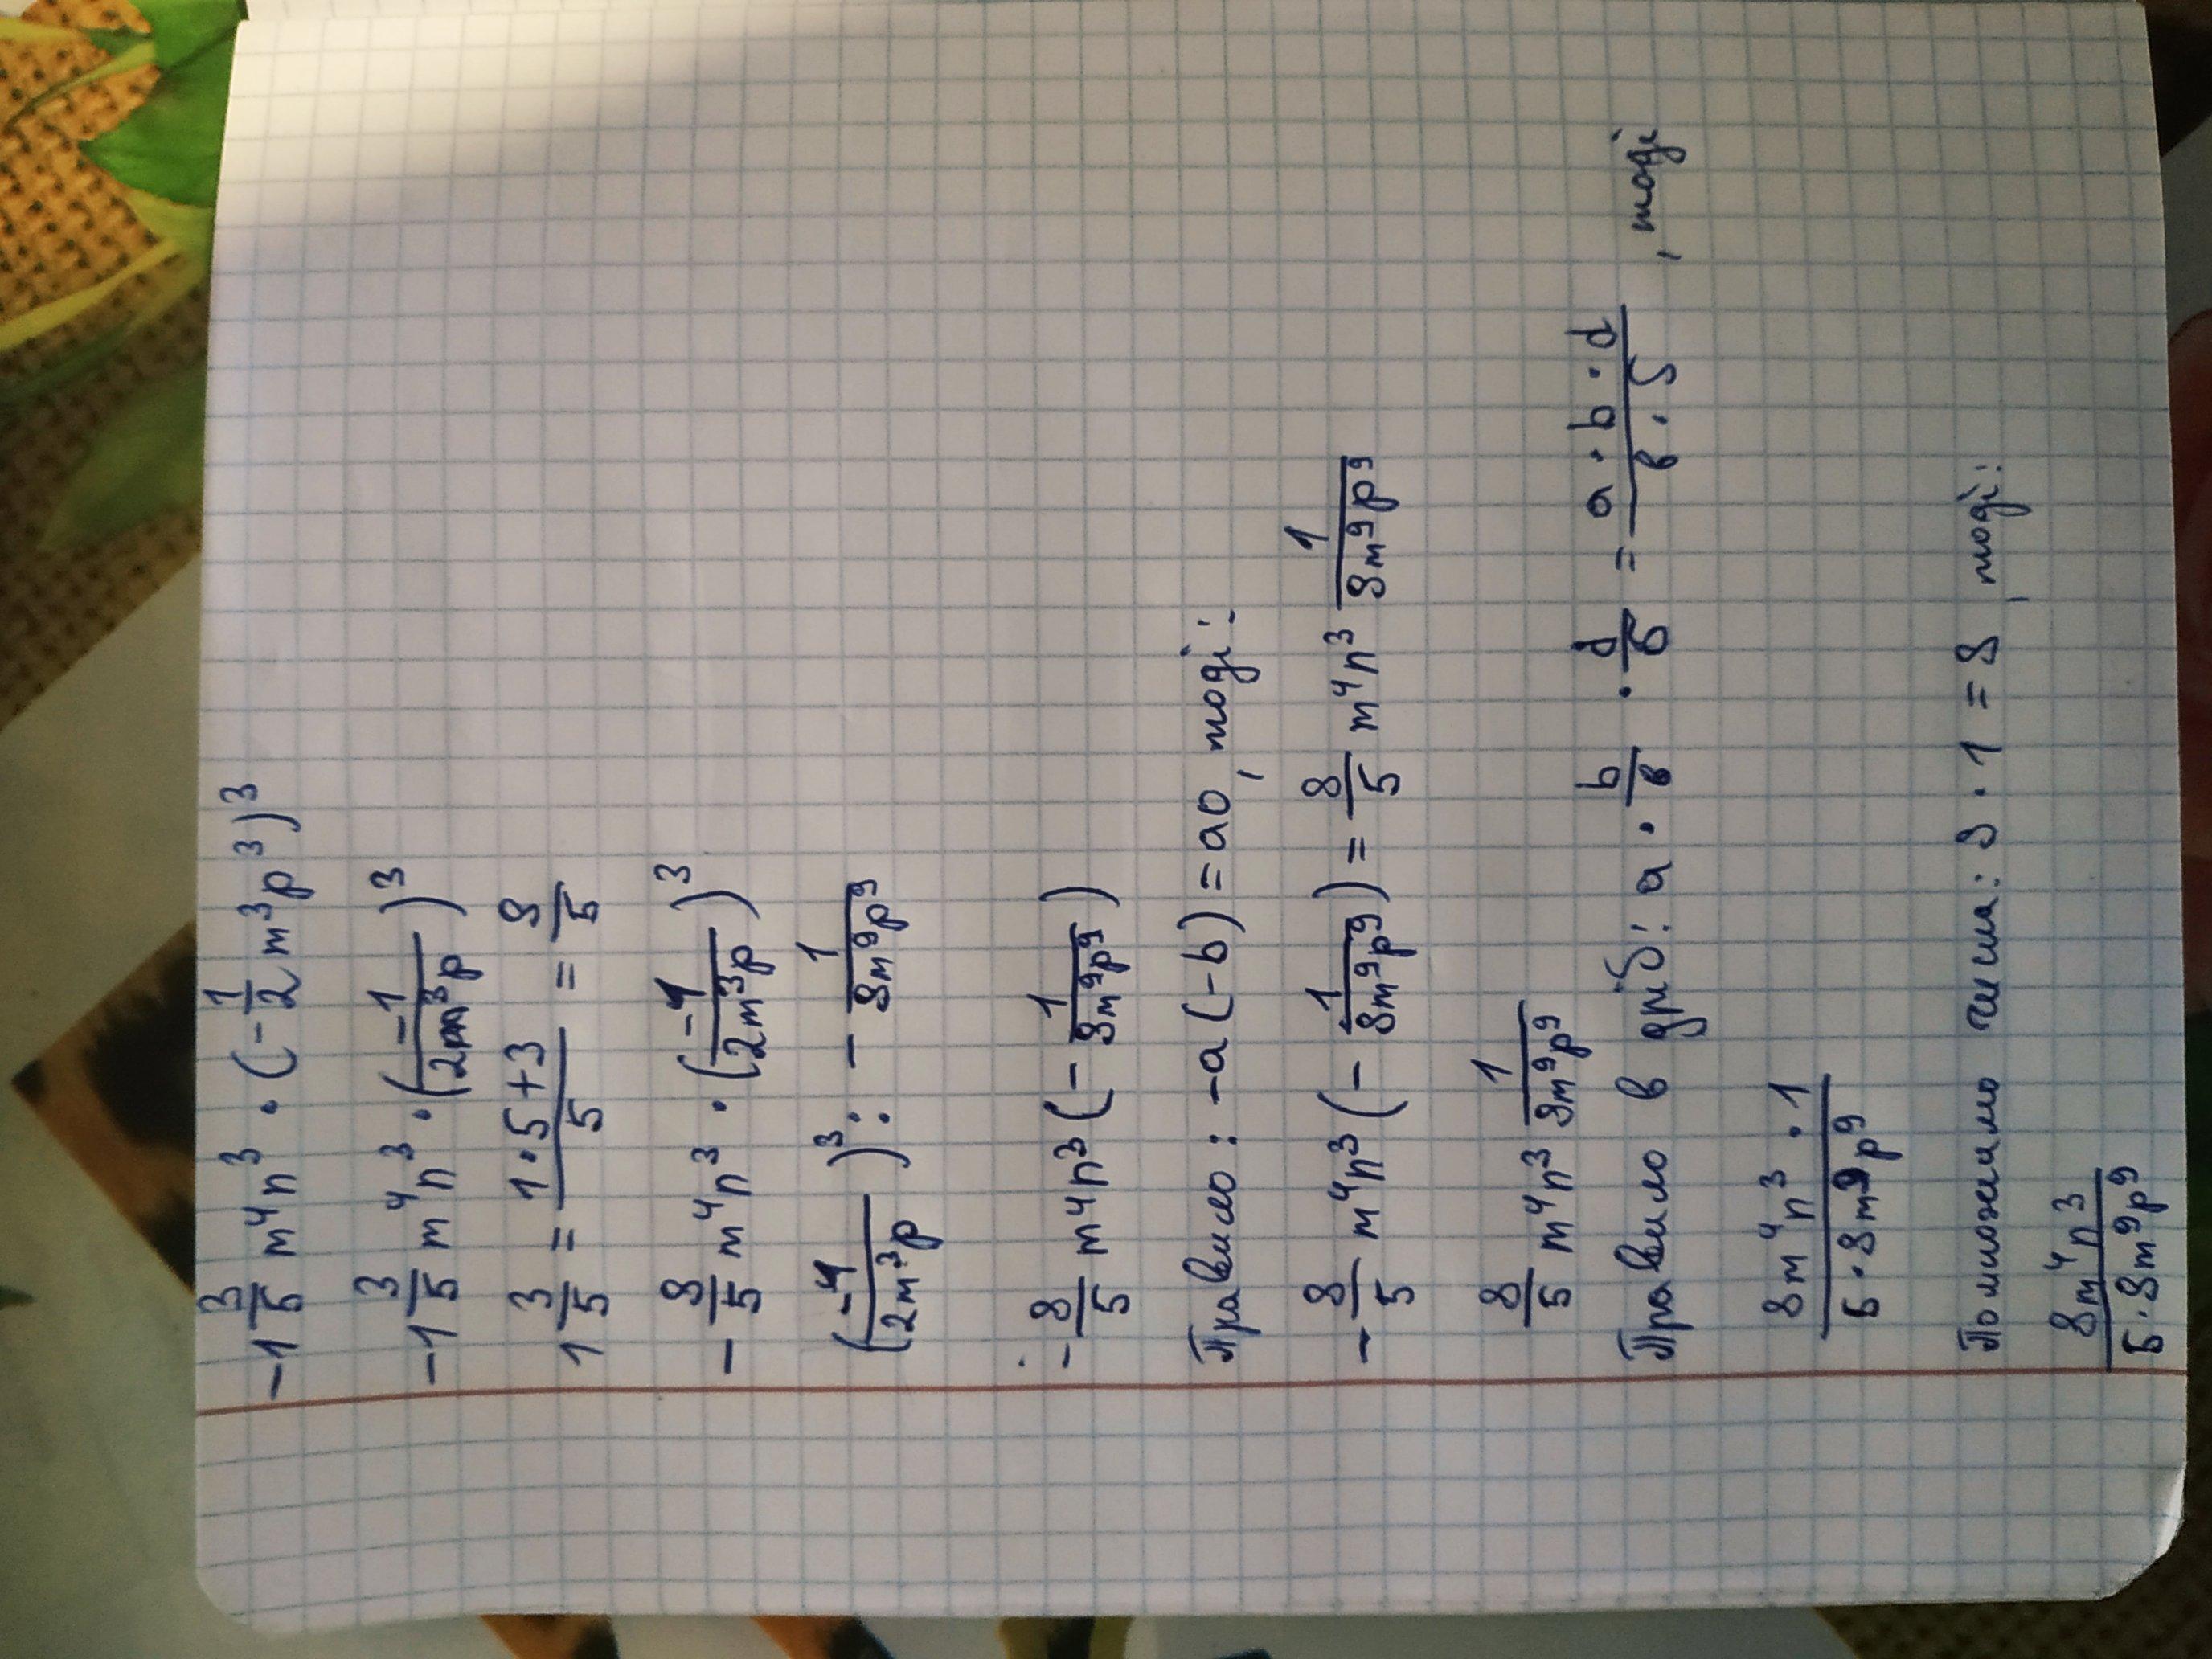 -1 3/5 m⁴n³ · (-1/2 m³p³)³
-1 3/5 m⁴n³ · (-1/2m³p)³
1 3/5 = 1·5+3/5 = 8/5
-8/5 m⁴n³ · (-1/2m³p)³
(-1/2m³p)³: - 1/8m⁹p⁹
-8/5 m⁴n³(-1/8m⁹p⁹)
Правило: -a(-b)=ab, тоді:
-8/5 m⁴n³(-1/8m⁹p⁹)=8/5 m⁴n³ 1/8m⁹p⁹
8/5 m⁴n³ 1/8m⁹p⁹
Правило в дріб: a · b/в · d/б = a·b·d/в·5, тоді
8m⁴n³·1/5·8m⁹p⁹
Помножимо числа: 8·1=8, тоді:
8m⁴n³/5·8m⁹p⁹